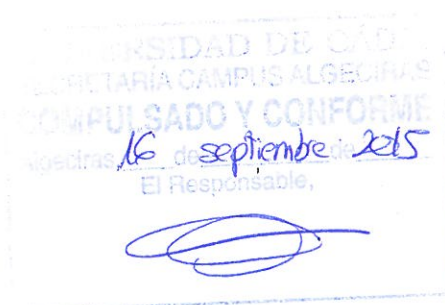 UNIVERSIDAD DE CÁDIZ
SECRETARÍA CAMPUS ALGECIRAS
COMPULSADO Y CONFORME
Algeciras 16 de septiembre de 2015
El Responsable,